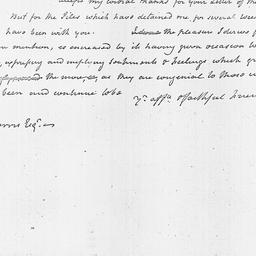 my cordial thanks for your letter of the
But for the Piles which have detained me for several weeks
have been with you. the pleasure I derive f
mention, is increased by it having given occasion to
, expressing and implying sentiments & feelings which gr
the more, as they are congenial to those w
been and continue to be
yr. affte. & faithful frien
Esqr.